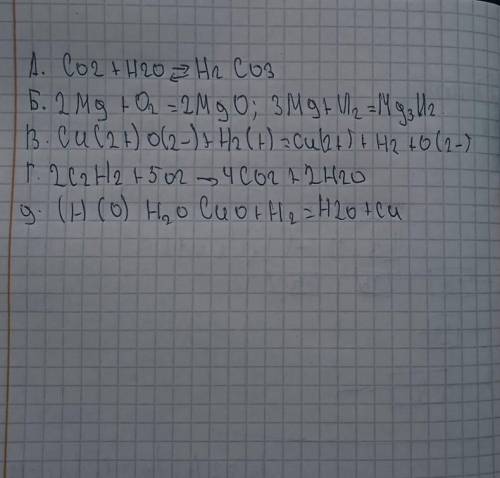 А. CO2 + H2O ⇄ H2 CO3
Б. 2Mg + O2 = 2MgO; 3Mg + И2 = Mg3И2
В. Cu(2+) O(2-) + H2(+) = Cu(2+) + H2 + O(2-)
Г. 2C2H2 + 5O2 → 4CO2 + 2H2O
д. (H (O) H2O CuO + H2 = H2O + Cu